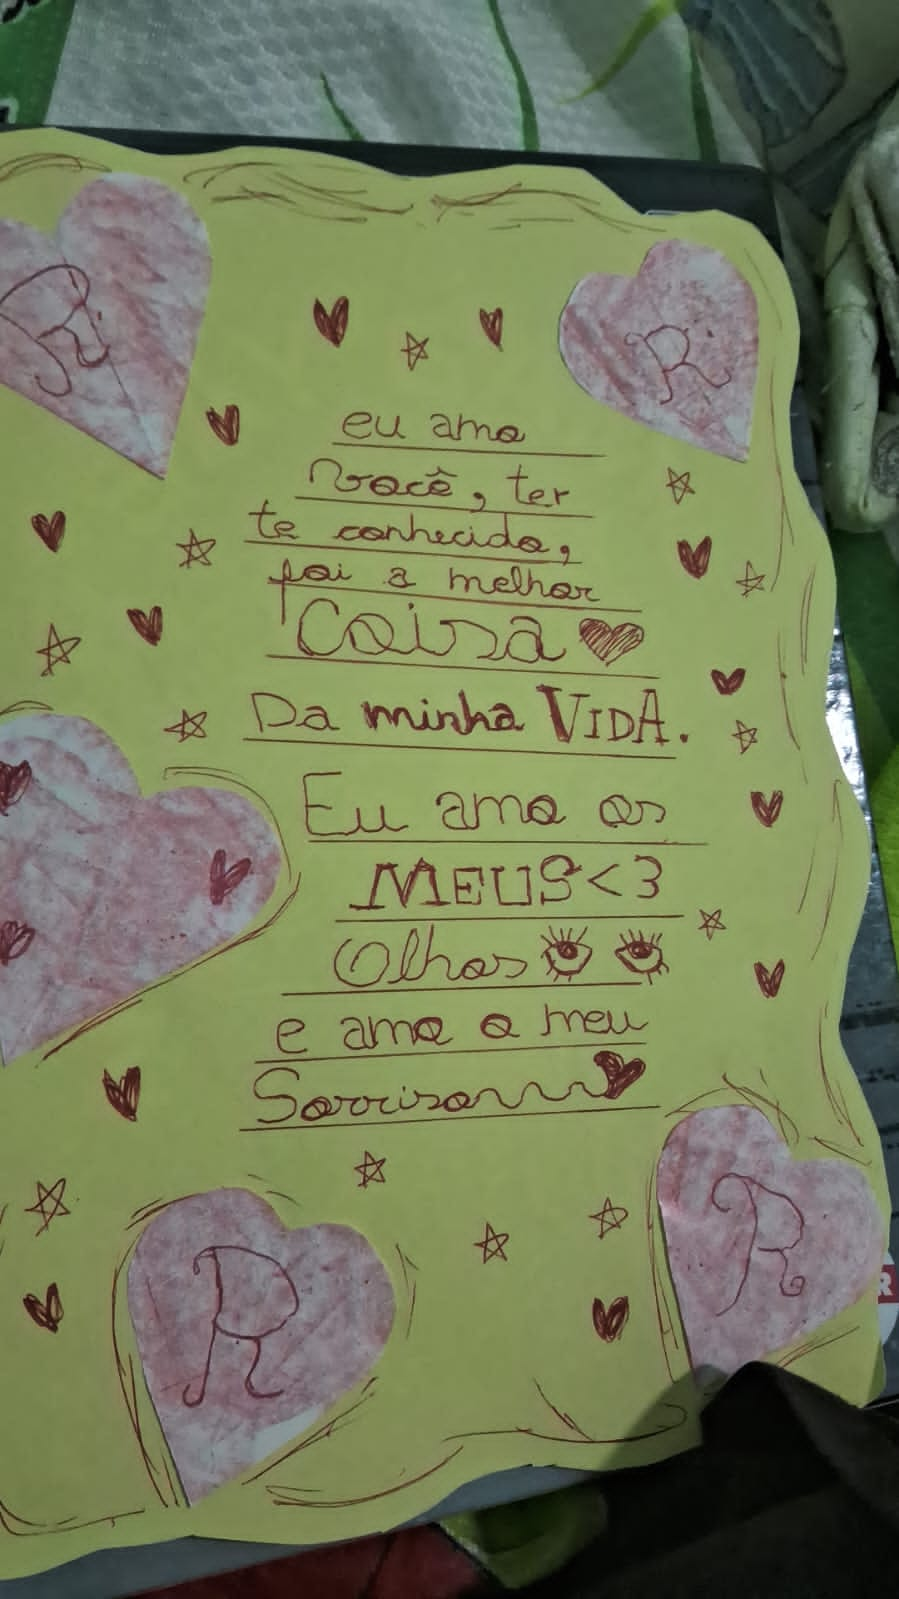 R
R
eu amo
você, ter
te conhecido,
foi a melhor
Coisa
Da minha VIDA.
Eu amo os
MEUS<3
Olhos
e amo o meu
Sorriso
R
R
R